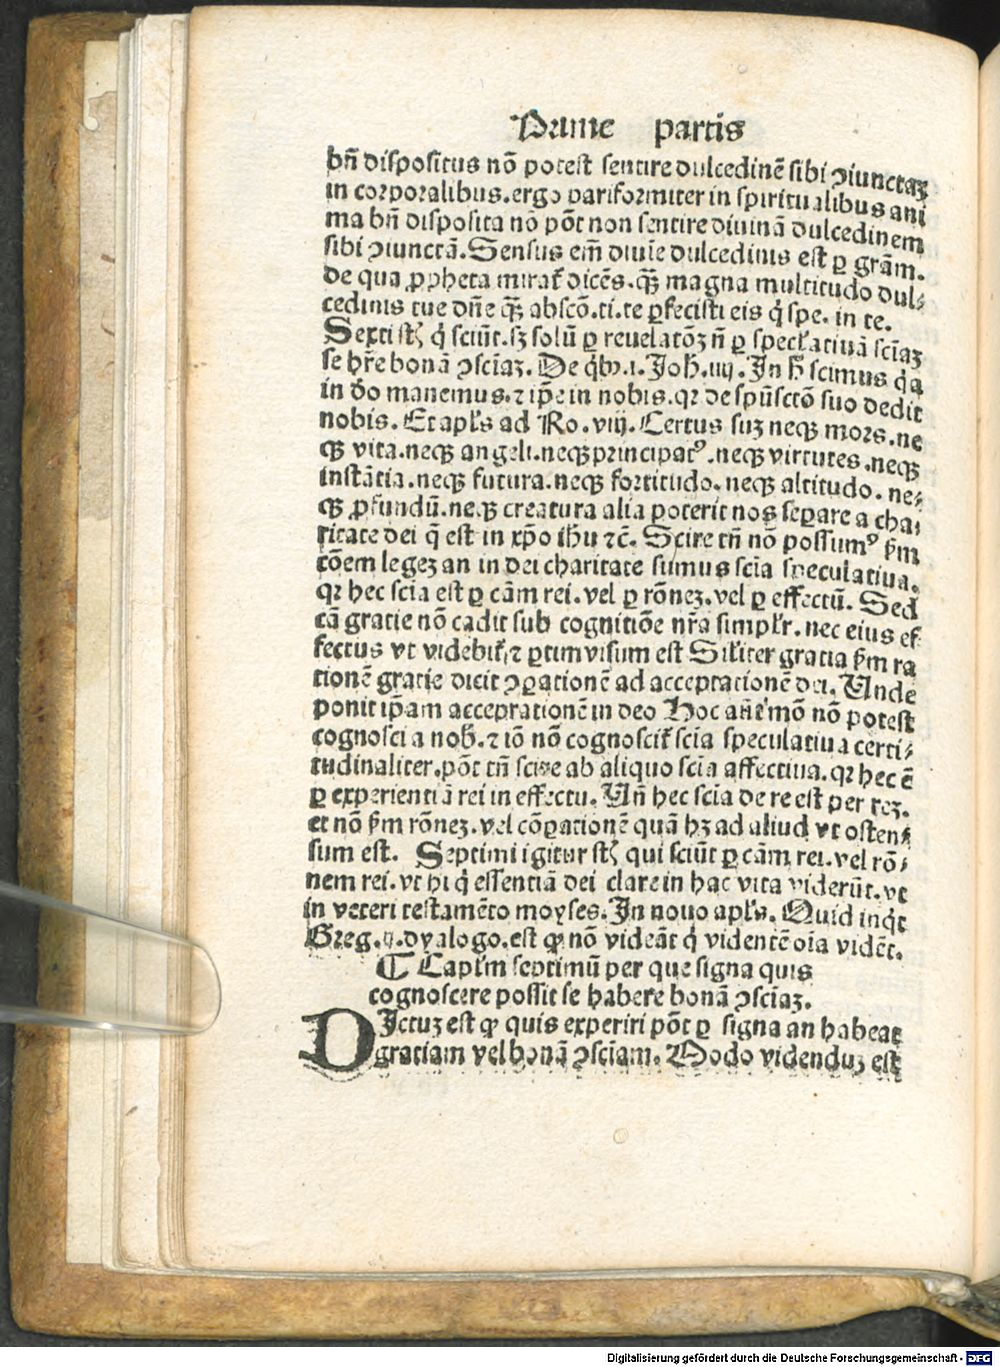 Prime partis
bn̄ dispositus nō potest sentire dulcedinē sibi ꝯiunctaꝫ
in corporalibus.ergo pariformiter in spiritualibus ani
ma bn̄ disposita nō pōt non sentire diuinā dulcedinem
sibi ꝯiunctā. Sensus em̄ diuīe dulcedinis est ꝑ grām.
de qua ꝓpheta mirat᷑ dicēs.qꝫ̄ magna multitudo dul⸗
cedinis tue dn̄e qꝫ̄ abscō.ti.te ꝑfecisti eis q̇ spe. in te.
Sexti st̄ q̇ sciūt.sꝫ solū ꝑ reuelatōꝫ n̄ ꝑ speclatiuā sciāꝫ
se hr̄e bonā ꝯsciāꝫ. De q̇bꝰ.i. Joh̄. iiij. In h̄ scimus q̇a
in deo manemus.⁊ ip̄e in nobis.qꝛ de spūsctō suo dedit
nobis. Et apl̄s ad Ro. viij. Certus suꝫ neqꝫ mors.ne
qꝫ vita.neqꝫ angeli.neqꝫ principatꝰ.neqꝫ virtutes.neqꝫ
instātia.neqꝫ futura.neqꝫ fortitudo.neqꝫ altitudo. ne⸗
qꝫ ꝓfundū.neqꝫ creatura alia poterit nos seꝑare a cha⸗
ritate dei q̄ est in xp̄o ihū ⁊c̄. Scire tn̄ nō possumꝰ ẜm
cōem legeꝫ an in dei charitate sumus scīa speculatiua.
qꝛ hec scīa est ꝑ cām rei.vel ꝑ rōneꝫ.vel ꝑ effectū. Sed
cā gratie nō cadit sub cognitiōe nr̄a simplr̄. nec eius ef
fectus vt videbit᷑.⁊ ꝑtim visum est Silīter gratia ẜm ra
tionē gratie dicit ꝯꝑationē ad acceptationē dei. Unde
ponit ip̄am acceptationē in deo Hoc aūt mō nō potest
cognosci a nob̄. ⁊ iō nō cognoscit᷑ scīa speculatiua certi⸗
tudinaliter.pōt tn̄ scire ab aliquo scīa affectiua.qꝛ hec ē
ꝑ experientiā rei in effectu. Un̄ hec scīa de re est per reꝫ.
et nō ẜm rōneꝫ.vel cōꝑationē quā hꝫ ad aliud vt osten⸗
sum est. Septimi igitur st̄ qui sciūt ꝑ cām rei.vel rō⸗
nem rei.vt hi q̇ essentiā dei clare in hac vita viderūt.vt
in veteri testamēto moyses. In nouo apl̄s. Quid inq̇t
Greg.ij.dyalogo.est ꝙ nō videāt q̇ videntē oīa vidēt.
¶ Caplm septimū per que signa quis
cognoscere possit se habere bonā ꝯsciāꝫ.
DIctuꝫ est ꝙ quis experiri pōt ꝑ signa an habeat
gratiam vel bonā ꝯsciam. Modo videnduꝫ est
Digitalisierung gefördert durch die Deutsche Forschungsgemeinschaft - DFG